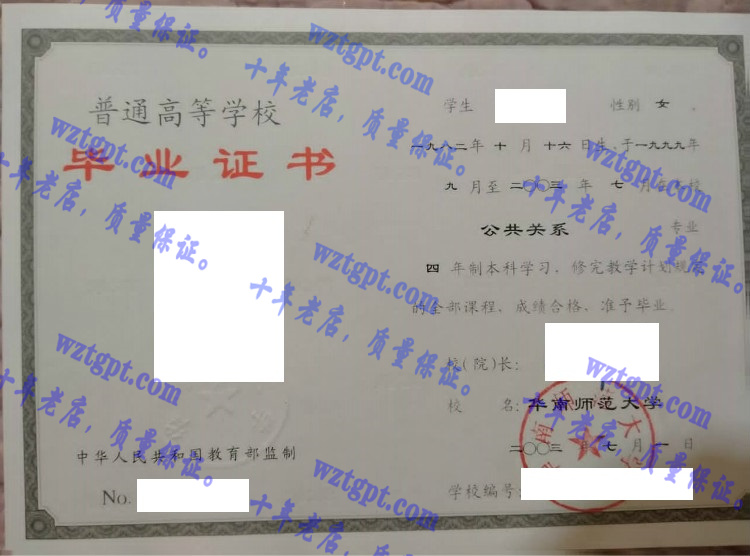 普通高等学校
毕业证书
中华人民共和国教育部监制
No.
学生 性别 女 ,
一九八二年 十 月 十六 日生,于一九九九年
九 月至 二〇〇三 年 七 月在本校
公共关系 专业
四 年制本科学习,修完教学计划规定
的全部课程,成绩合格,准予毕业。
校(院)长:
校 名:华南师范大学
二〇〇三 年 七 月 一 日
学校编号:
wztgpt.com
十年老店,质量保证。
wztgpt.com
十年老店,质量保证。
wztgpt.com
十年老店,质量保证。
wztgpt.com
十年老店,质量保证。
wztgpt.com
十年老店,质量保证。
wztgpt.com
十年老店,质量保证。
wztgpt.com
十年老店,质量保证。